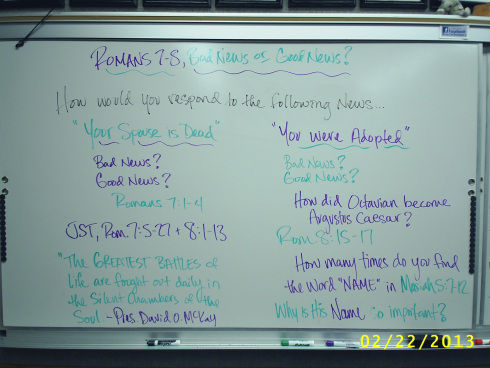 Romans 7-8, Bad News or Good News?
How would you respond to the following News...
"Your Spouse is Dead"
Bad News?
Good News?
Romans 7:1-4
JST, Rom. 7:5-27 + 8:1-13
"The GREATEST BATTLES of
life are fought out daily in
the Silent Chambers of the
Soul - Pres. David O. McKay
"You were Adopted"
Bad News?
Good News?
How did Octavian become
Augustus Caesar?
Rom. 8:15-17
How many times do you find
the Word "NAME" in Mosiah 5:7-12
Why is His Name so important?
02/22/2013